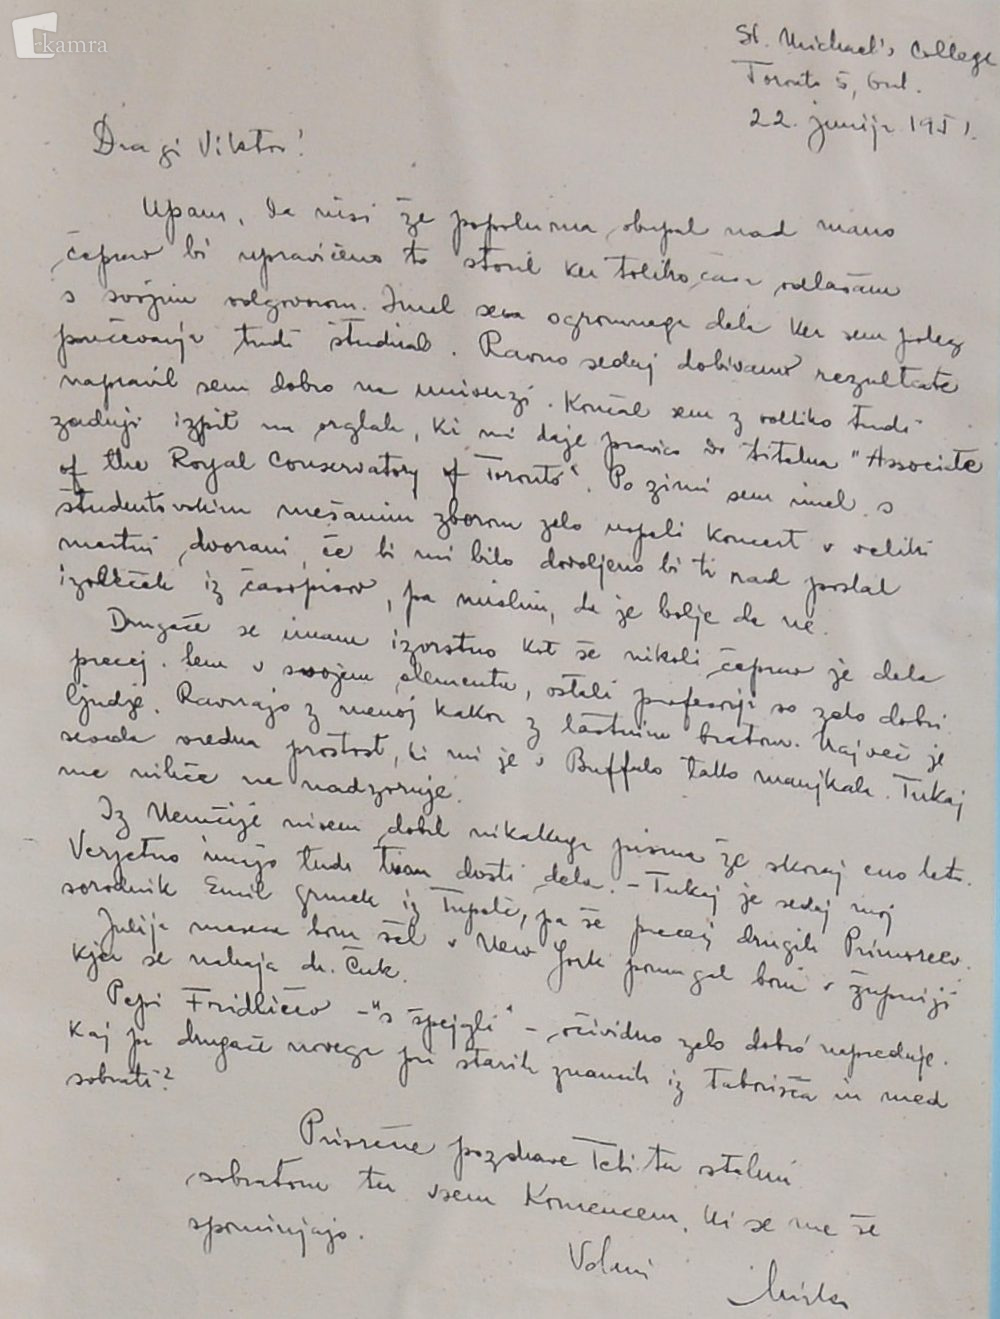 kamra
St. Michael's College
Toronto 5, Ont.
22. junija 1951.
Dragi Viktor!
Upam, da nisi že popolnoma obupal nad mano
čeprav bi upravičeno to storil ker toliko časa odlašam
s svojim odgovorom. Imel sem ogromnega dela ker sem poleg
poučevanja tudi študiral. Ravno sedaj dobivamo rezultate
napravil sem dobro na univerzi. Končal sem z odliko tudi
zadnji izpit na orglah, ki mi daje pravico do titelna "Associate
of the Royal Conservatory of Toronto". Po zimi sem imel s
študentovskim mešanim zborom zelo uspeli koncert v veliki
mestni dvorani, če bi mi bilo dovoljeno bi ti rad poslal
izrezek iz časopisov, pa mislim, da je bolje da ne.
Drugače se imam izvrstno kot še nikoli čeprav je dela
precej. Sem v svojem elementu, ostali profesorji so zelo dobri
ljudje. Ravnajo z menoj kakor z lastnim bratom. Največ je
seveda vredna prostost, ki mi je v Buffalo tako manjkala. Tukaj
me nihče ne nadzoruje.
Iz Nemčije nisem dobil nikakega pisma že skoraj eno leto.
Verjetno imajo tudi tam dosti dela. - Tukaj je sedaj moj
sorodnik Emil Grmek iz Trpelč, pa še precej drugih Primorcev.
Julija meseca bom šel v New York pomagal bom v župniji
kjer se nahaja dr. Čuk.
Pepi Fridličev - "s špejgli" - očividno zelo dobro napreduje.
Kaj je drugače novega pri starih znancih iz taborišča in med
sobrati?
Prisrčne pozdrave Tebi ter stalnim
sobratom ter vsem Komencem, ki se me še
spominjajo.
Vdani Mirko